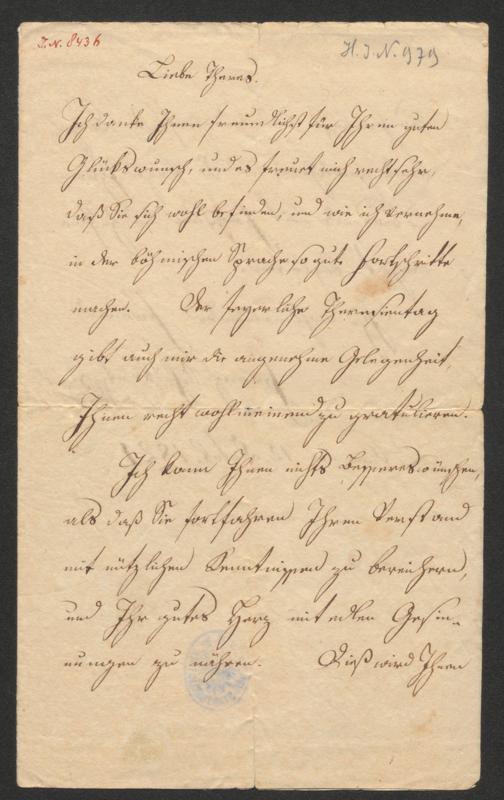 I. N. 8436
H. I. N. 979
Liebe Theres.
Ich danke Ihnen freundlichst für Ihren guten
Glückswunsch, und es freuet mich recht sehr,
daß Sie sich wohl befinden, und wie ich vernehme,
in der böhmischen Sprache so gute Fortschritte
machen. Der feyerliche Theresientag
gibt auch mir die angenehme Gelegenheit
Ihnen recht wohlmeinend zu gratulieren.
Ich kann Ihnen nichts Besseres wünschen,
als daß Sie fortfahren Ihren Verstand
mit nützlichen Kenntnissen zu bereichern,
und Ihr gutes Herz mit edlen Gesin-
nungen zu nähren. Dieß wird Ihnen